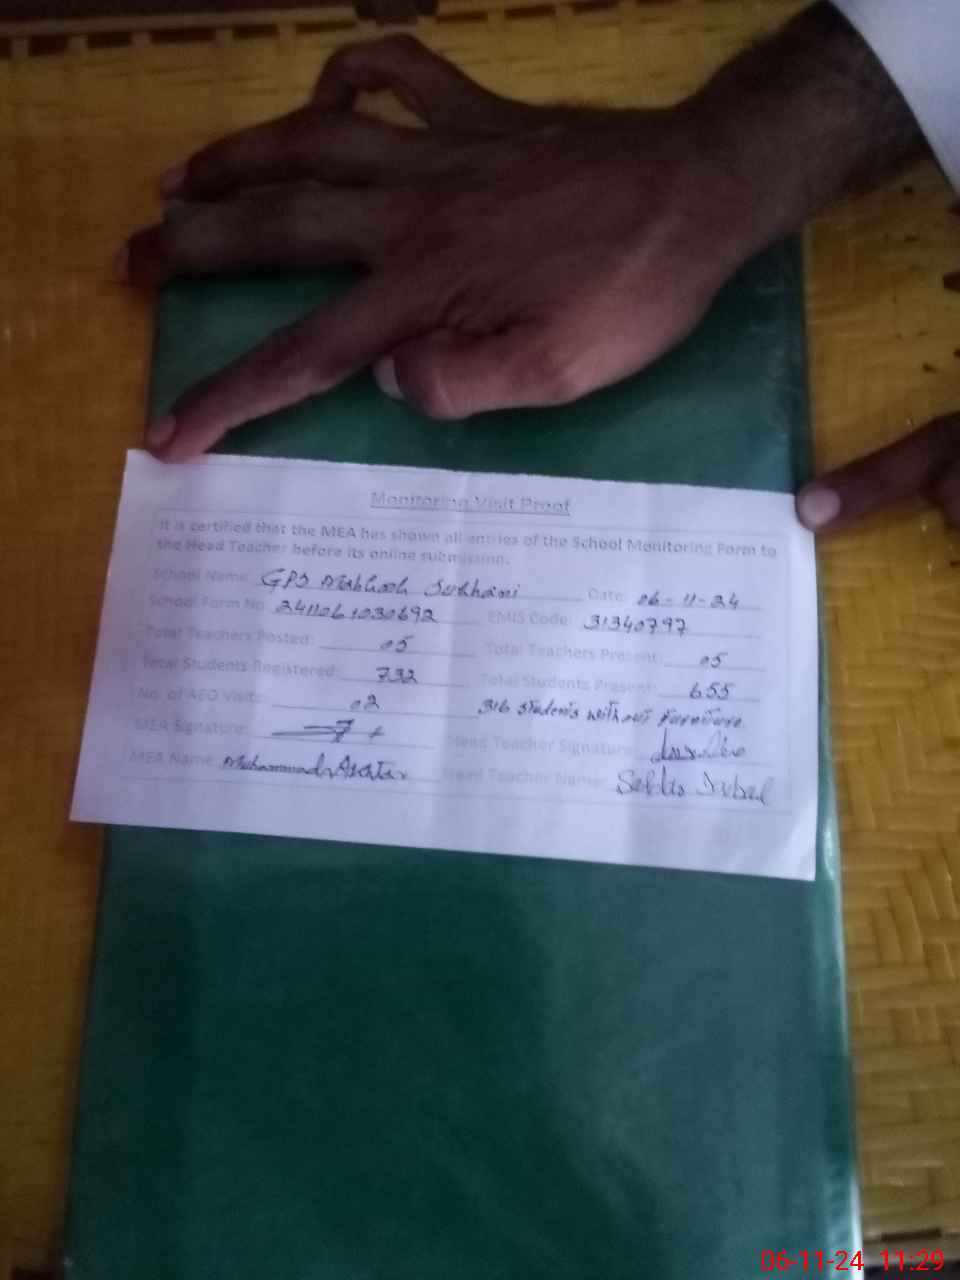 Monitoring Visit Proof
It is certified that the MEA has shown all entries of the School Monitoring Form to
the Head Teacher before its online submission.
School Name: GPS Sukhani Date: 06-11-24
School Form No: 2411061030692 EMIS Code: 31340797
Total Teachers Posted: 05 Total Teachers Present: 05
Total Students Registered: 732 Total Students Present: 655
No. of AEO Visits: 02 316 students without furniture
MEA Signature: Head Teacher Signature:
MEA Name: Muhammad Head Teacher Name:
06-11-24 11:29